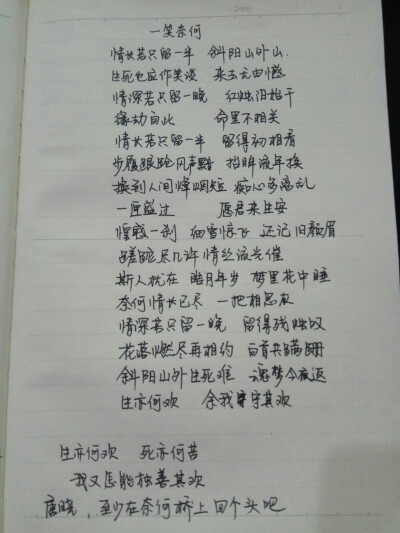 一笑奈何
情长若只留一半 斜阳山外山.
生死也应作笑谈 来去无由憾
情深若只留一晚 红烛泪始干
缘劫自此 命里不相关
情长若只留一半 留得初相看
步履踉跄风声黯 拾眸流年换
换到人间烽烟短 痴心多离乱
一匣盛过 愿君来生安
惶惶一刹 细雪惊飞 还记旧颜眉
蹉跎尽几许 情丝流光催
斯人犹在 皓月年岁 梦里花中睡
奈何情长已尽 一把相思灰
情深若只留一晚 留得残烛叹
花落燃尽再相约 白首共蹒跚
斜阳山外生死难 魂梦今夜返
生亦何欢 余我 字其欢
生亦何欢 死亦何苦
我又怎能独善其欢
唐晓，至少在奈何桥上回个头吧